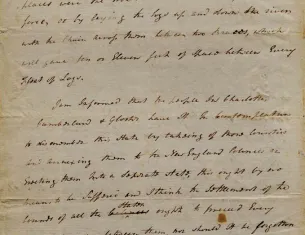 places were the
force, or by laying the Logs up and down the river
with the Chain across them between two heads, which
will give ten or Eleven feet of Space between Every
float of Logs.
I am Informed that the people In Charlotte
Cumberland & Gloster have It In Contemplation
to dismember this State by takeing of those Counties
and annexing them to the New England Colonies or
Erecting them into a Seperate State, this ought by no
means to be Suffered and I think the Settlement of the
bounds of all the States ought to preceed Every
between them nor should It be forgotten